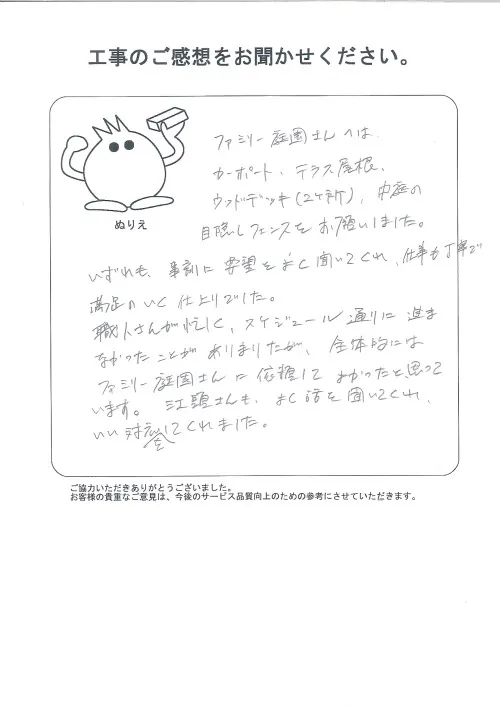 工事のご感想をお聞かせください。
ファミリー庭園さんへは
カーポート、テラス屋根、
ウッドデッキ(2ヶ所)、中庭の
目隠しフェンスをお願いしました。
ぬりえ
いずれも、事前に要望をよく聞いてくれ、仕事も丁寧で
満足のいく仕上りでした。
職人さんが忙しく、スケジュール通りに進ま
なかったことがありましたが、全体的には
ファミリー庭園さんに依頼してよかったと思って
います。江頭さんも、よく話を聞いてくれ、
いい対応してくれました。
ご協力いただきありがとうございました。
お客様の貴重なご意見は、今後のサービス品質向上のための参考にさせていただきます。